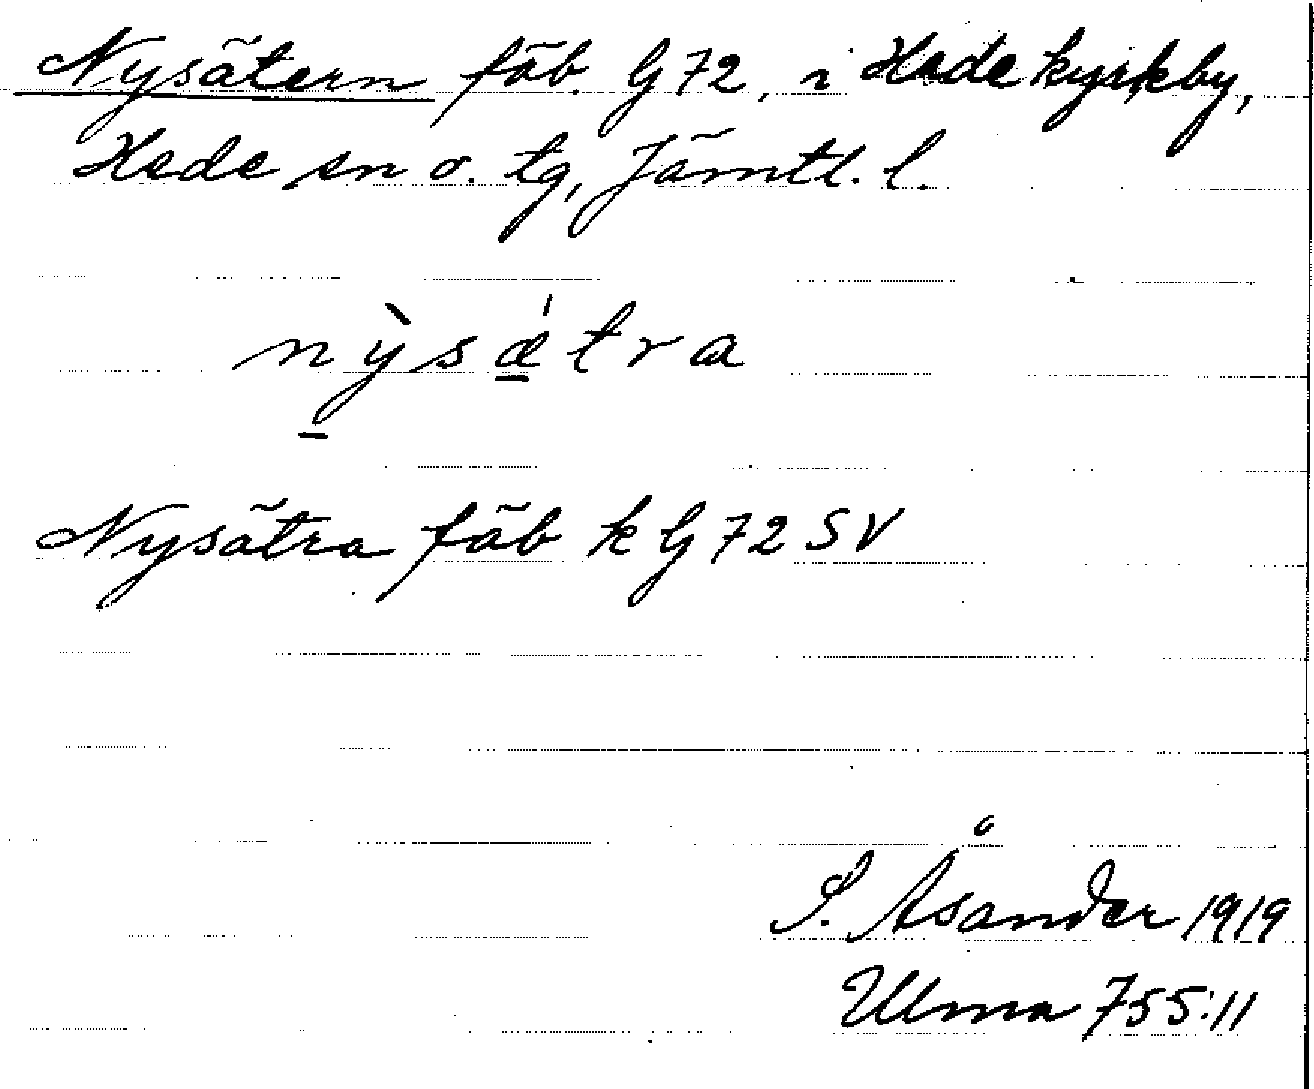 Nysätern fäb. G 72, i Hede kyrkby,
Hede sn o. tg, Jämtl. l.
nỳsǽtra
Nysätra fäb k G 72 SV
S. Åsander 1919
Ulma 755:11